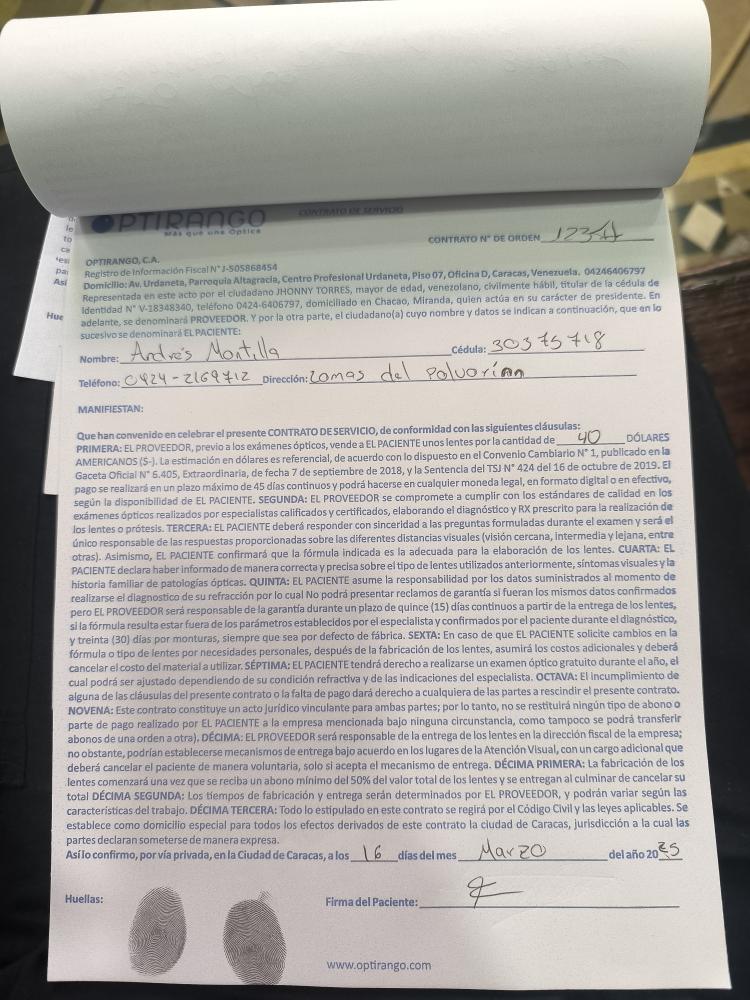 OPTIRANGO
Más que una Óptica
CONTRATO DE SERVICIO
CONTRATO N° DE ORDEN
OPTIRANGO, C.A.
Registro de Información Fiscal N° J-505868454
Domicilio: Av. Urdaneta, Parroquia Altagracia, Centro Profesional Urdaneta, Piso 07, Oficina D, Caracas, Venezuela. 04246406797
Representada en este acto por el ciudadano JHONNY TORRES, mayor de edad, venezolano, civilmente hábil, titular de la cédula de
Identidad N° V-18348340, teléfono 0424-6406797, domiciliado en Chacao, Miranda, quien actúa en su carácter de presidente. En
adelante, se denominará PROVEEDOR. Y por la otra parte, el ciudadano(a) cuyo nombre y datos se indican a continuación, que en lo
sucesivo se denominará EL PACIENTE:
Nombre: Andrés Montilla Cédula: 30375718
Teléfono: 0424-2169712 Dirección: Lomas del Polvorín
MANIFIESTAN:
Que han convenido en celebrar el presente CONTRATO DE SERVICIO, de conformidad con las siguientes cláusulas:
PRIMERA: EL PROVEEDOR, previo a los exámenes ópticos, vende a EL PACIENTE unos lentes por la cantidad de 40 DÓLARES
AMERICANOS (S-). La estimación en dólares es referencial, de acuerdo con lo dispuesto en el Convenio Cambiario N° 1, publicado en la
Gaceta Oficial N° 6.405, Extraordinaria, de fecha 7 de septiembre de 2018, y la Sentencia del TSJ N° 424 del 16 de octubre de 2019. El
pago se realizará en un plazo máximo de 45 días continuos y podrá hacerse en cualquier moneda legal, en formato digital o en efectivo,
según la disponibilidad de EL PACIENTE. SEGUNDA: EL PROVEEDOR se compromete a cumplir con los estándares de calidad en los
exámenes ópticos realizados por especialistas calificados y certificados, elaborando el diagnóstico y RX prescrito para la realización de
los lentes o prótesis. TERCERA: EL PACIENTE deberá responder con sinceridad a las preguntas formuladas durante el examen y será el
único responsable de las respuestas proporcionadas sobre las diferentes distancias visuales (visión cercana, intermedia y lejana, entre
otras). Asimismo, EL PACIENTE confirmará que la fórmula indicada es la adecuada para la elaboración de los lentes. CUARTA: EL
PACIENTE declara haber informado de manera correcta y precisa sobre el tipo de lentes utilizados anteriormente, síntomas visuales y la
historia familiar de patologías ópticas. QUINTA: EL PACIENTE asume la responsabilidad por los datos suministrados al momento de
realizarse el diagnostico de su refracción por lo cual No podrá presentar reclamos de garantía si fueran los mismos datos confirmados
pero EL PROVEEDOR será responsable de la garantía durante un plazo de quince (15) días continuos a partir de la entrega de los lentes,
si la fórmula resulta estar fuera de los parámetros establecidos por el especialista y confirmados por el paciente durante el diagnóstico,
y treinta (30) días por monturas, siempre que sea por defecto de fábrica. SEXTA: En caso de que EL PACIENTE solicite cambios en la
fórmula o tipo de lentes por necesidades personales, después de la fabricación de los lentes, asumirá los costos adicionales y deberá
cancelar el costo del material a utilizar. SÉPTIMA: EL PACIENTE tendrá derecho a realizarse un examen óptico gratuito durante el año, el
cual podrá ser ajustado dependiendo de su condición refractiva y de las indicaciones del especialista. OCTAVA: El incumplimiento de
alguna de las cláusulas del presente contrato o la falta de pago dará derecho a cualquiera de las partes a rescindir el presente contrato.
NOVENA: Este contrato constituye un acto jurídico vinculante para ambas partes; por lo tanto, no se restituirá ningún tipo de abono o
parte de pago realizado por EL PACIENTE a la empresa mencionada bajo ninguna circunstancia, como tampoco se podrá transferir
abonos de una orden a otra), DÉCIMA: EL PROVEEDOR será responsable de la entrega de los lentes en la dirección fiscal de la empresa;
no obstante, podrían establecerse mecanismos de entrega bajo acuerdo en los lugares de la Atención Visual, con un cargo adicional que
deberá cancelar el paciente de manera voluntaria, solo si acepta el mecanismo de entrega. DÉCIMA PRIMERA: La fabricación de los
lentes comenzará una vez que se reciba un abono mínimo del 50% del valor total de los lentes y se entregan al culminar de cancelar su
total DÉCIMA SEGUNDA: Los tiempos de fabricación y entrega serán determinados por EL PROVEEDOR, y podrán variar según las
características del trabajo. DÉCIMA TERCERA: Todo lo estipulado en este contrato se regirá por el Código Civil y las leyes aplicables. Se
establece como domicilio especial para todos los efectos derivados de este contrato la ciudad de Caracas, jurisdicción a la cual las
partes declaran someterse de manera expresa.
Así lo confirmo, por vía privada, en la Ciudad de Caracas, a los 16 días del mes Marzo del año 2025
Huellas:
Firma del Paciente:
www.optirango.com